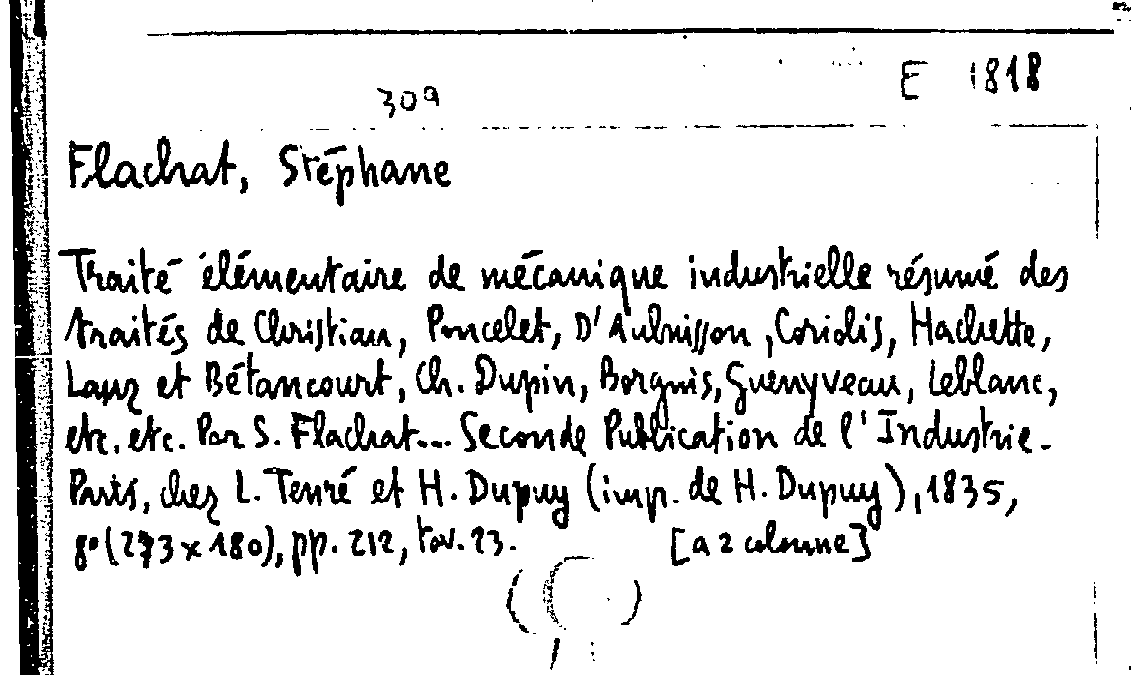 E 1818
309
Flachat, Stéphane
Traité élémentaire de mécanique industrielle résumé des
traités de Christian, Poncelet, D'Aubuisson, Coriolis, Hachette,
Lanz et Bétancourt, Ch. Dupin, Borgnis, Guenyveau, Leblanc,
etc. etc. Par S. Flachat... Seconde Publication de l'Industrie.
Paris, chez L. Tenré et H. Dupuy (imp. de H. Dupuy), 1835,
8° (273 x 180), pp. 212, tav. 23. [a 2 colonne]